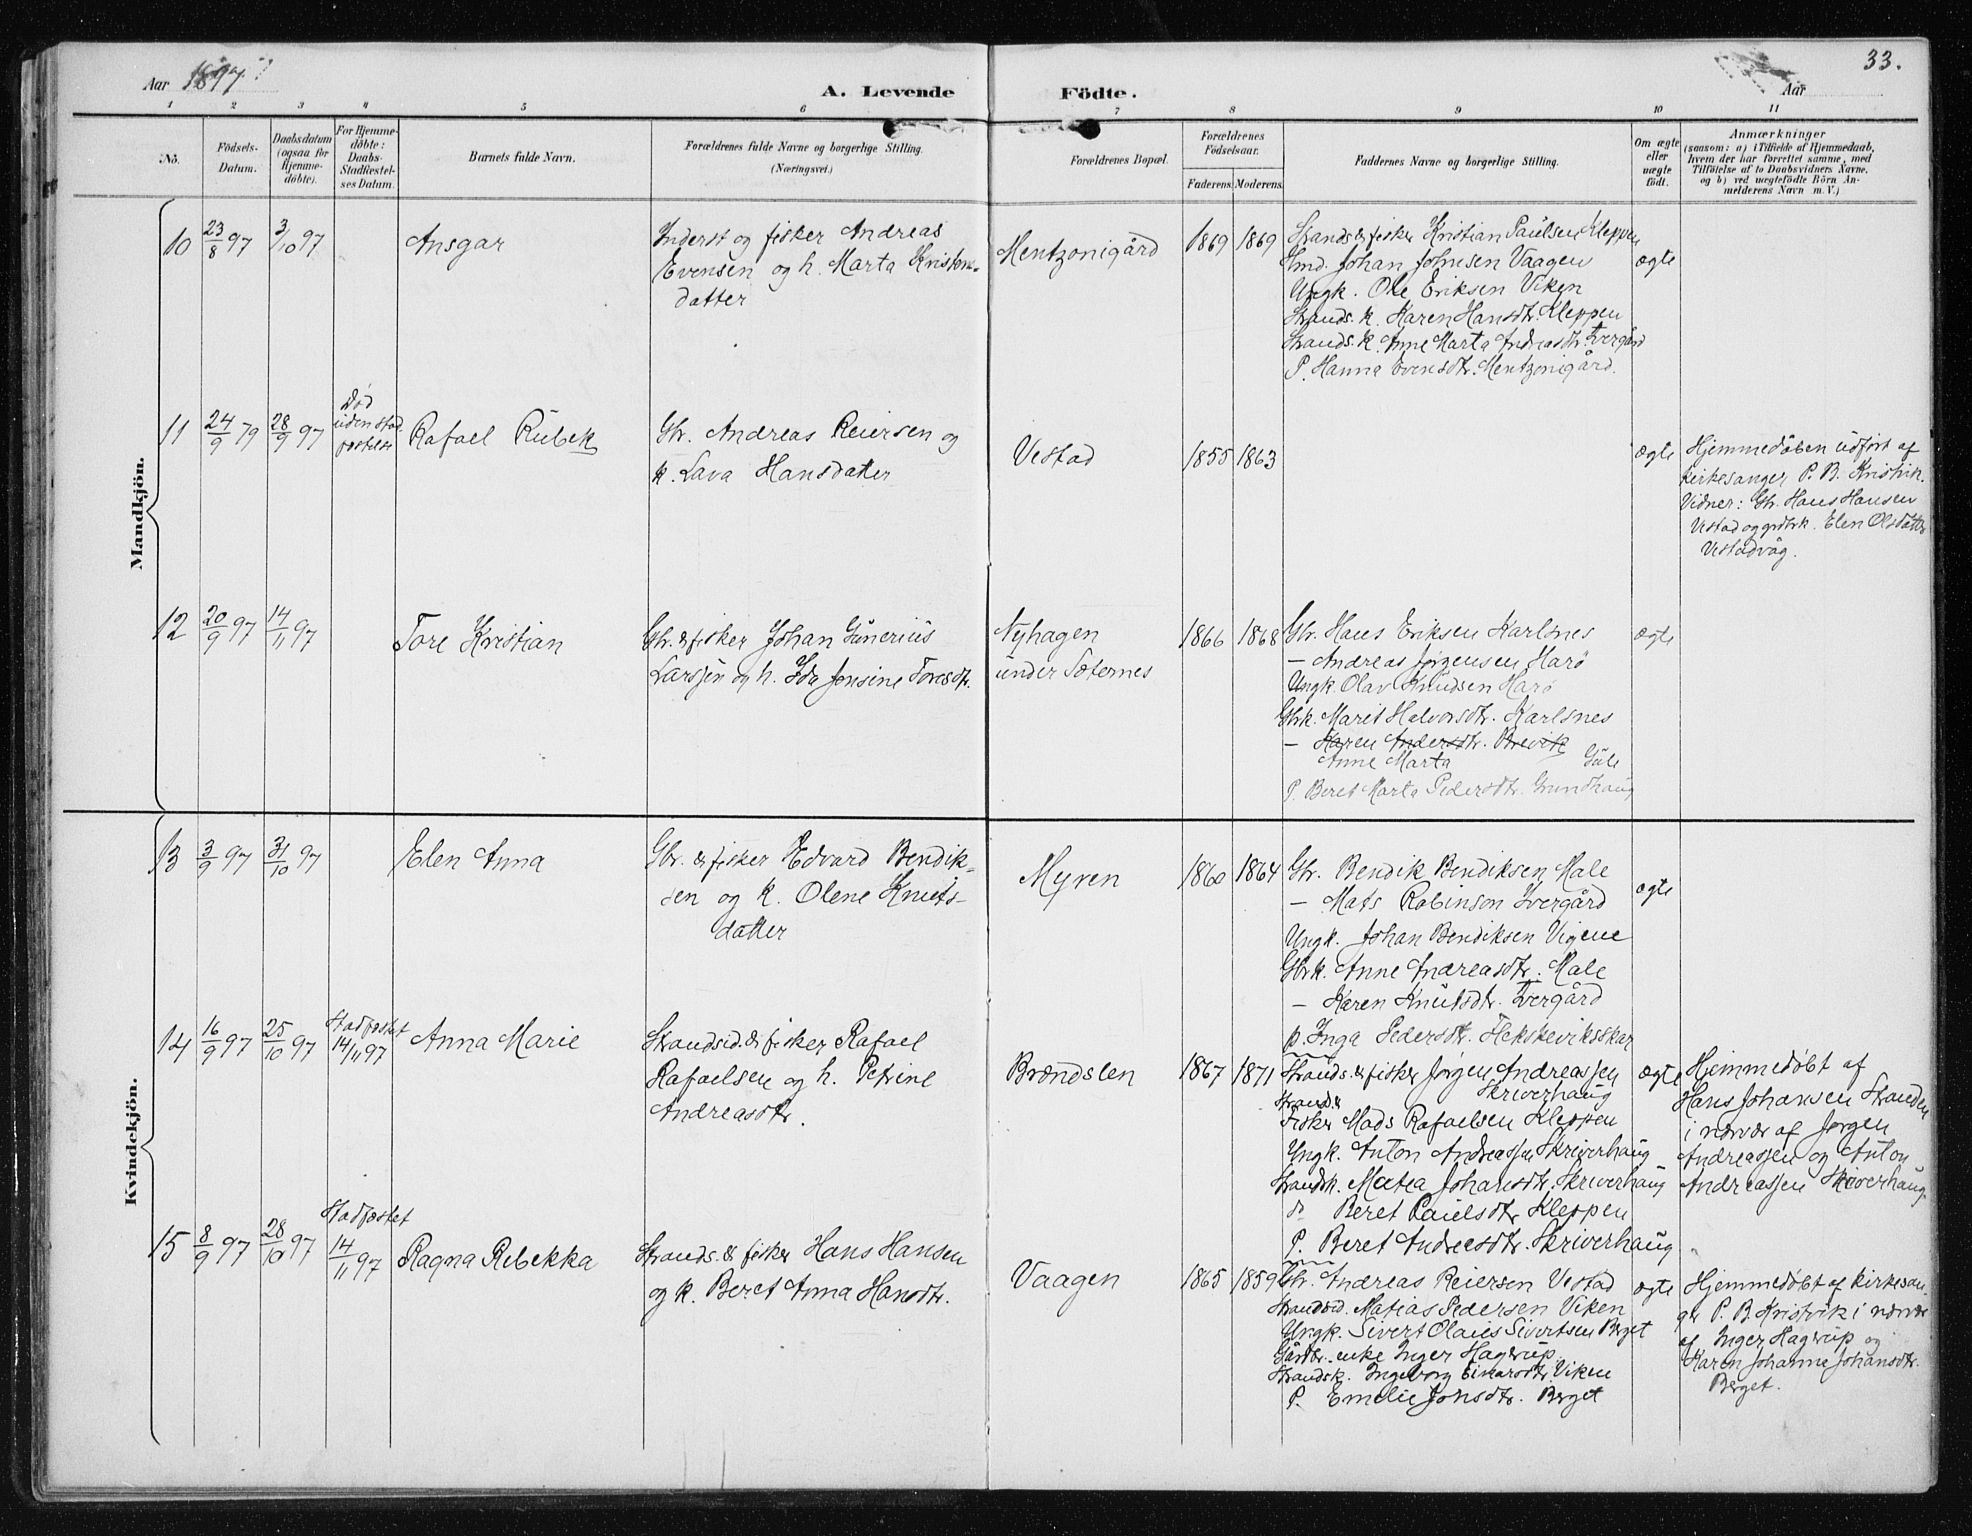 Aar 1897.
A. Levende Födte.
33.
Aar
1 2 3 4 5 6 7 8 9 10 11
No.
Födsels-Datum.
Daabsdatum (ogsaa for Hjemme-döbte).
For Hjemme-döbte: Daabs-Stadfæstel-ses Datum.
Barnets fulde Navn.
Forældrenes fulde Navne og borgerlige Stilling. (Næringsvei.)
Forældrenes Bopæl.
Forældrenes Födselsaar.
Faderens. Moderens.
Faddernes Navne og borgerlige Stilling.
Om ægte eller uægte födt.
Anmærkninger
(saasom: a) i Tilfælde af Hjemmedaab,
hvem der har forrettet samme, med
Tilföielse af to Daabsvidners Navne,
og b) ved uægtefödte Börn An-
melderens Navn m. V.)
Mandkjön.
10 23/8 97 3/10 97 Ansgar
Inderst og fisker Andreas
Evensen og h. Marta Kristens-
datter
Mentzonigård 1869 1869
Strands. & fisker Kristian Paulsen Kleppen
Hmd. Johan Johnsen Vaagen
Ungk. Ole Eriksen Viken
Strands. k. Karen Hansdtr. Kleppen
Strands. k. Anne Marta Andreasdtr. Tvergård
P. Hanna Evensdtr. Mentzonigård.
ægte
11 24/9 79 28/9 97
Død
uden stad
fæstelse
Rafael Rubek
Gbr. Andreas Reiersen og
k. Lava Hansdatter
Vestad 1855 1863
ægte
Hjemmedåben udført af
kirkesanger P. B. Kristvik.
Vidner: Gbr. Hans Hansen
Vestad og grdbrk. Elen Olsdatter
Vestadvåg.
12 20/9 97 14/11 97 Tore Kristian
Gbr. & fisker Johan Gunerius
Larsen og h. Ida Jensine Toresdtr.
Nyhagen
under Sæternes
1866 1868
Gbr. Hans Eriksen Karlsnes
— Andreas Jørgensen Harø
Ungk. Olav Knudsen Harø
Gbrk. Marit Halvorsdtr. Karlsnes
— Karen Andersdtr. Brevik
Anne Marta Gule
P. Beret Marta Pedersdtr. Grundhaug
ægte
Kvindekjön.
13 3/9 97 31/10 97 Elen Anna
Gbr. & fisker Edvard Bendik-
sen og k. Olene Knuts-
datter
Myren 1860 1864
Gbr. Bendik Bendiksen Male
— Mats Robinson Tvergård
Ungk. Johan Bendiksen Vigene
Gbrk. Anne Andreasdtr. Male
— Karen Knutsdtr. Tvergård
p. Inga Pedersdtr. Hekskeviksskar
ægte
14 16/9 97 25/10 97
Stadfæstet
14/11 97
Anna Marie
Strandsid. & fisker Rafael
Rafaelsen og h. Petrine
Andreasdtr.
Brændslen 1867 1871
Strands. & fisker Jørgen Andreassen
Skriverhaug
Strands. &
Fisker Mads Rafaelsen Kleppen
Ungk. Anton Andreassen Skriverhaug
Strandsk. Matea Johansdtr. Skriverhaug
do Beret Paulsdtr. Kleppen
P. Beret Andreasdtr. Skriverhaug
ægte
Hjemmedøbt af
Hans Johansen Stranden
i nærvær af Jørgen
Andreassen og Anton
Andreassen Skriverhaug.
15 8/9 97 28/10 97
Stadfæstet
14/11 97
Ragna Rebekka
Strands. & fisker Hans Hansen
og k. Beret Anna Hansdtr.
Vaagen 1865 1859
Gbr. Andreas Reiersen Vestad
Strandsid. Matias Pedersen Viken
Ungk. Sivert Olaus Sivertsen Berget
Gårdbr. enke Inger Hagerup.
Strandsk. Ingeborg Einarsdtr. Viken
P. Emelie Jonsdtr. Berget
ægte
Hjemmedøbt af kirkesan-
ger P. B. Kristvik i nærvær
af Inger Hagerup og
Karen Johanne Johansdtr.
Berget.